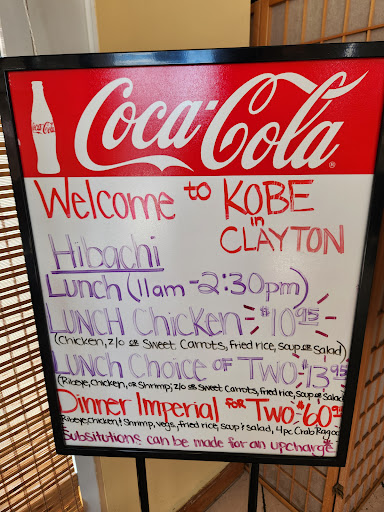 Coca-Cola
Coca-Cola
Welcome to KOBE
in
CLAYTON
Hibachi
Lunch (11am-2:30pm)
LUNCH Chicken $10.95
(Chicken, z/o or Sweet Carrots, Fried rice, soup or salad)
LUNCH CHOICE OF TWO $13.95
(Ribeye, Chicken, or Shrimp; z/o or Sweet Carrots, fried rice, soup or salad
Dinner Imperial for TWO $60.95
Ribeye, Chicken & Shrimp, vegs, fried rice, soup & salad, 4pc Crab
Subsitutions can be made for an upcharge